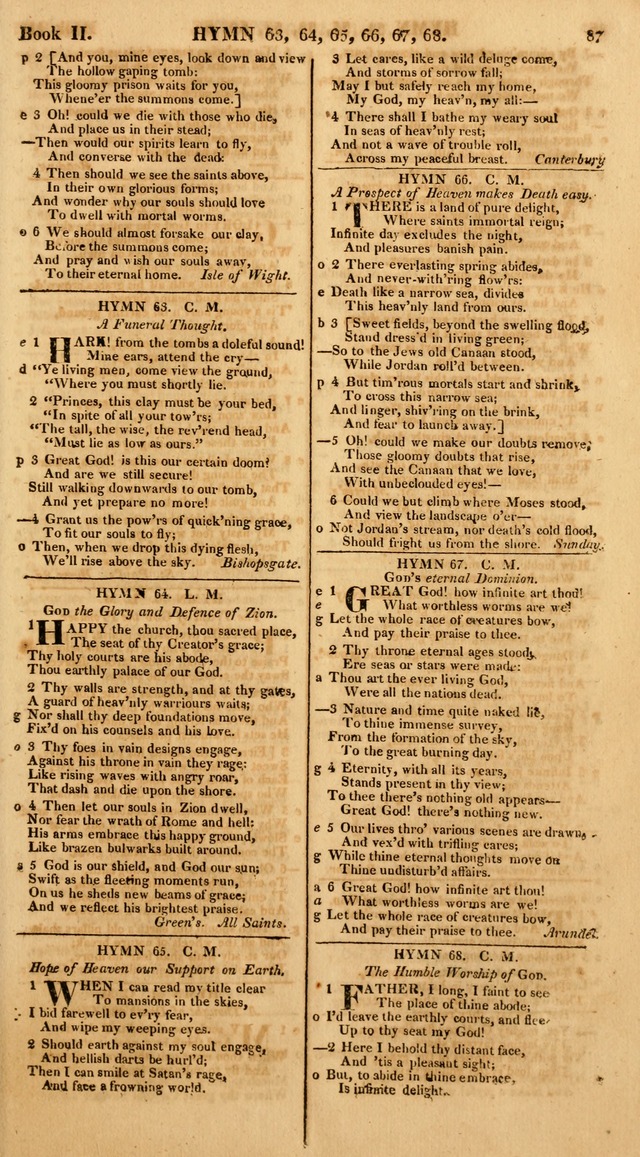 Book II. HYMN 63, 64, 65, 66, 67, 68. 87
p 2 [And you, mine eyes, look down and view
The hollow gaping tomb:
This gloomy prison waits for you,
Whene'er the summons come.]
e 3 Oh! could we die with those who die,
And place us in their stead;
—Then would our spirits learn to fly,
And converse with the dead:
4 Then should we see the saints above,
In their own glorious forms;
And wonder why our souls should love
To dwell with mortal worms.
o 6 We should almost forsake our clay,
Before the summons come;
And pray and wish our souls away,
To their eternal home. Isle of Wight.
HYMN 63. C. M.
A Funeral Thought.
e 1 HARK! from the tombs a doleful sound!
Mine ears, attend the cry—
d "Ye living men, come view the ground,
"Where you must shortly lie.
2 "Princes, this clay must be your bed,
"In spite of all your tow'rs;
"The tall, the wise, the rev'rend head,
"Must lie as low as ours."
p 3 Great God! is this our certain doom?
And are we still secure!
Still walking downwards to our tomb,
And yet prepare no more!
—4 Grant us the pow'rs of quick'ning grace,
To fit our souls to fly;
o Then, when we drop this dying flesh,
We'll rise above the sky. Bishopsgate.
HYMN 64. L. M.
GOD the Glory and Defence of Zion.
1 HAPPY the church, thou sacred place,
The seat of thy Creator's grace;
Thy holy courts are his abode,
Thou earthly palace of our God.
2 Thy walls are strength, and at thy gates,
A guard of heav'nly warriours waits;
g Nor shall thy deep foundations move,
Fix'd on his counsels and his love.
o 3 Thy foes in vain designs engage,
Against his throne in vain they rage:
Like rising waves with angry roar,
That dash and die upon the shore.
o 4 Then let our souls in Zion dwell,
Nor fear the wrath of Rome and hell:
His arms embrace this happy ground,
Like brazen bulwarks built around.
s 5 God is our shield, and God our sun;
Swift as the fleeting moments run,
On us he sheds new beams of grace;
And we reflect his brightest praise.
Green's. All Saints.
HYMN 65. C. M.
Hope of Heaven our Support on Earth.
1 WHEN I can read my title clear
To mansions in the skies,
I bid farewell to ev'ry fear,
And wipe my weeping eyes.
2 Should earth against my soul engage,
And hellish darts be hurl'd;
Then I can smile at Satan's rage,
And face a frowning world.
3 Let cares, like a wild deluge come,
And storms of sorrow fall;
May I but safely reach my home,
My God, my heav'n, my all:—
4 There shall I bathe my weary soul
In seas of heav'nly rest;
And not a wave of trouble roll,
Across my peaceful breast. Canterbury
HYMN 66. C. M.
A Prospect of Heaven makes Death easy.
1 THERE is a land of pure delight,
Where saints immortal reign;
Infinite day excludes the night,
And pleasures banish pain.
o 2 There everlasting spring abides,
And never-with'ring flow'rs:
e Death like a narrow sea, divides
This heav'nly land from ours.
b 3 [Sweet fields, beyond the swelling flood,
Stand dress'd in living green;
—So to the Jews old Canaan stood,
While Jordan roll'd between.
p 4 But tim'rous mortals start and shrink,
To cross this narrow sea;
And linger, shiv'ring on the brink,
And fear to launch away.]
—5 Oh! could we make our doubts remove,
Those gloomy doubts that rise,
And see the Canaan that we love,
With unbeclouded eyes!—
6 Could we but climb where Moses stood,
And view the landscape o'er—
o Not Jordan's stream, nor death's cold flood,
Should fright us from the shore. Sunday.
HYMN 67. C. M.
GOD'S eternal Dominion.
e 1 GREAT God! how infinite art thou!
e What worthless worms are we!
g Let the whole race of creatures bow,
And pay their praise to thee.
2 Thy throne eternal ages stood,
Ere seas or stars were made:
a Thou art the ever living God,
Were all the nations dead.
—3 Nature and time quite naked lie,
To thine immense survey,
From the formation of the sky,
To the great burning day.
g 4 Eternity, with all its years,
Stands present in thy view;
To thee there's nothing old appears—
Great God! there's nothing new.
e 5 Our lives thro' various scenes are drawn,
And vex'd with trifling cares;
g While thine eternal thoughts move on
Thine undisturb'd affairs.
a 6 Great God! how infinite art thou!
a What worthless worms are we!
g Let the whole race of creatures bow,
And pay their praise to thee. Arundel.
HYMN 68. C. M.
The Humble Worship of GOD.
1 FATHER, I long, I faint to see
The place of thine abode;
o I'd leave the earthly courts, and flee
Up to thy seat my God!
—2 Here I behold thy distant face,
And 'tis a pleasant sight;
o But, to abide in thine embrace,
Is infinite delight.